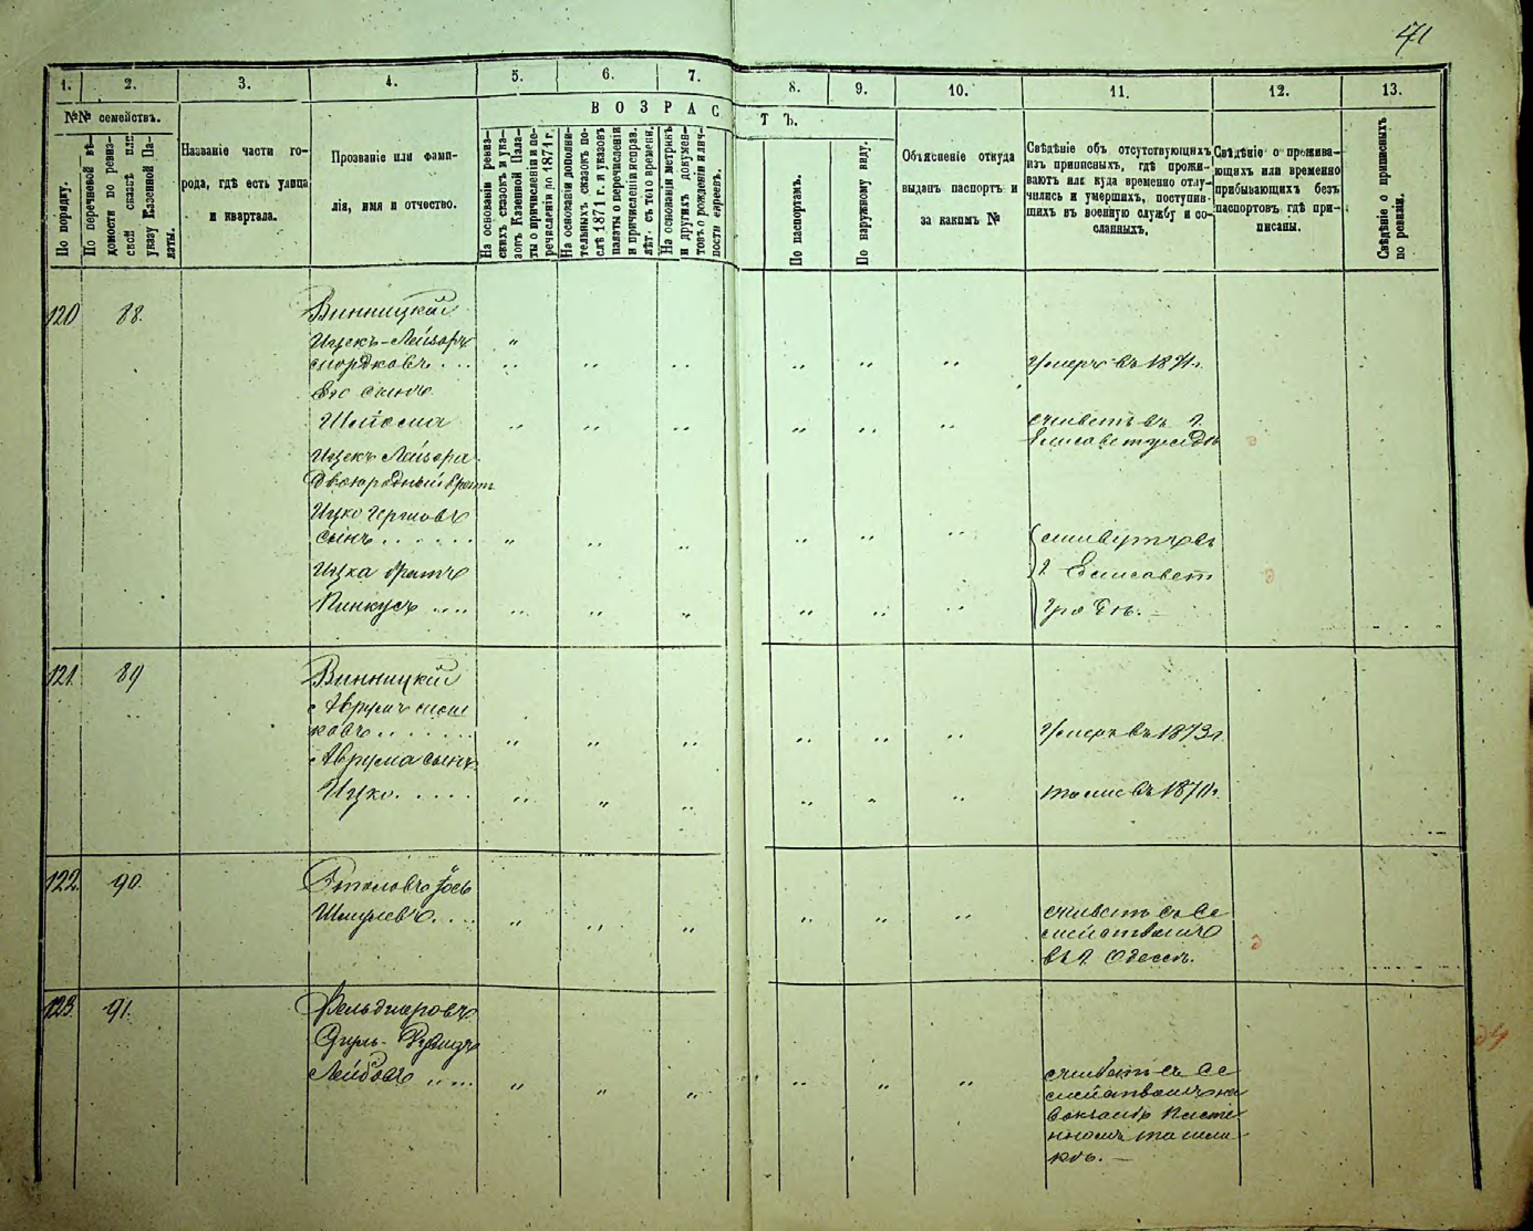 71
1. 2. 3. 4. 5. 6. 7. 8. 9. 10. 11. 12. 13.
№№ семействъ.
По порядку.
По перечневой вѣ-
домости по ревиз-
ской сказкѣ или
указу Казенной Па-
латы.
Названіе части го-
рода, гдѣ есть улица
и квартала.
Прозваніе или фами-
лія, имя и отчество.
ВОЗРАСТЪ.
На основаніи ревиз-
скихъ сказокъ и ука-
зовъ Казенной Пала-
ты о причисленіи и пе-
речисленіи до 1871 г.
На основаніи дополни-
тельныхъ сказокъ по-
слѣ 1871 г. и указовъ
палаты о перечисленіи
и причисленіи исправ.
лѣт. съ того времени.
На основаніи метрикъ
и другихъ докумен-
товъ о рожденіи и лич-
ности евреевъ.
По паспортамъ.
По наружному виду.
Объясненіе откуда
выданъ паспортъ и
за какимъ №
Свѣдѣніе объ отсутствующихъ
изъ приписныхъ, гдѣ прожи-
ваютъ или куда временно отлу-
чились и умершихъ, поступив-
шихъ въ военную службу и со-
сланныхъ.
Свѣдѣніе о прожива-
ющихъ или временно
прибывающихъ безъ
паспортовъ гдѣ при-
писаны.
Свѣдѣніе о приписныхъ
по ревизіи.
120 88. Винницкій
Ицекъ-Лейзоръ "
Мордковъ... " " " " " " Умеръ въ 1871 г.
Его сынъ
Шлиома " " " " " " живетъ въ г.
Елисаветградѣ
Ицекъ Лейзера
Двоюродный братъ
Ицко Гершовъ
сынъ...... " " " " " " живутъ въ
Ицка братъ г. Елисавет
Пинкусъ.... " " " " " " градѣ. —
121. 89 Винницкій
Аврумъ Мош
ковъ...... " " " " " " Умеръ въ 1873 г.
Аврума сынъ
Ицко..... " " " " " " тоже въ 1870 г.
122. 90. Іось
Шмулевъ.... " " " " " " живетъ съ се
мействомъ
въ г. Одессѣ.
123. 91. Фельдшеровъ
Лейбовъ.... " " " " " " живетъ съ се
мействомъ на
вокзалѣ Плете
номъ Ташлы
кѣ. —